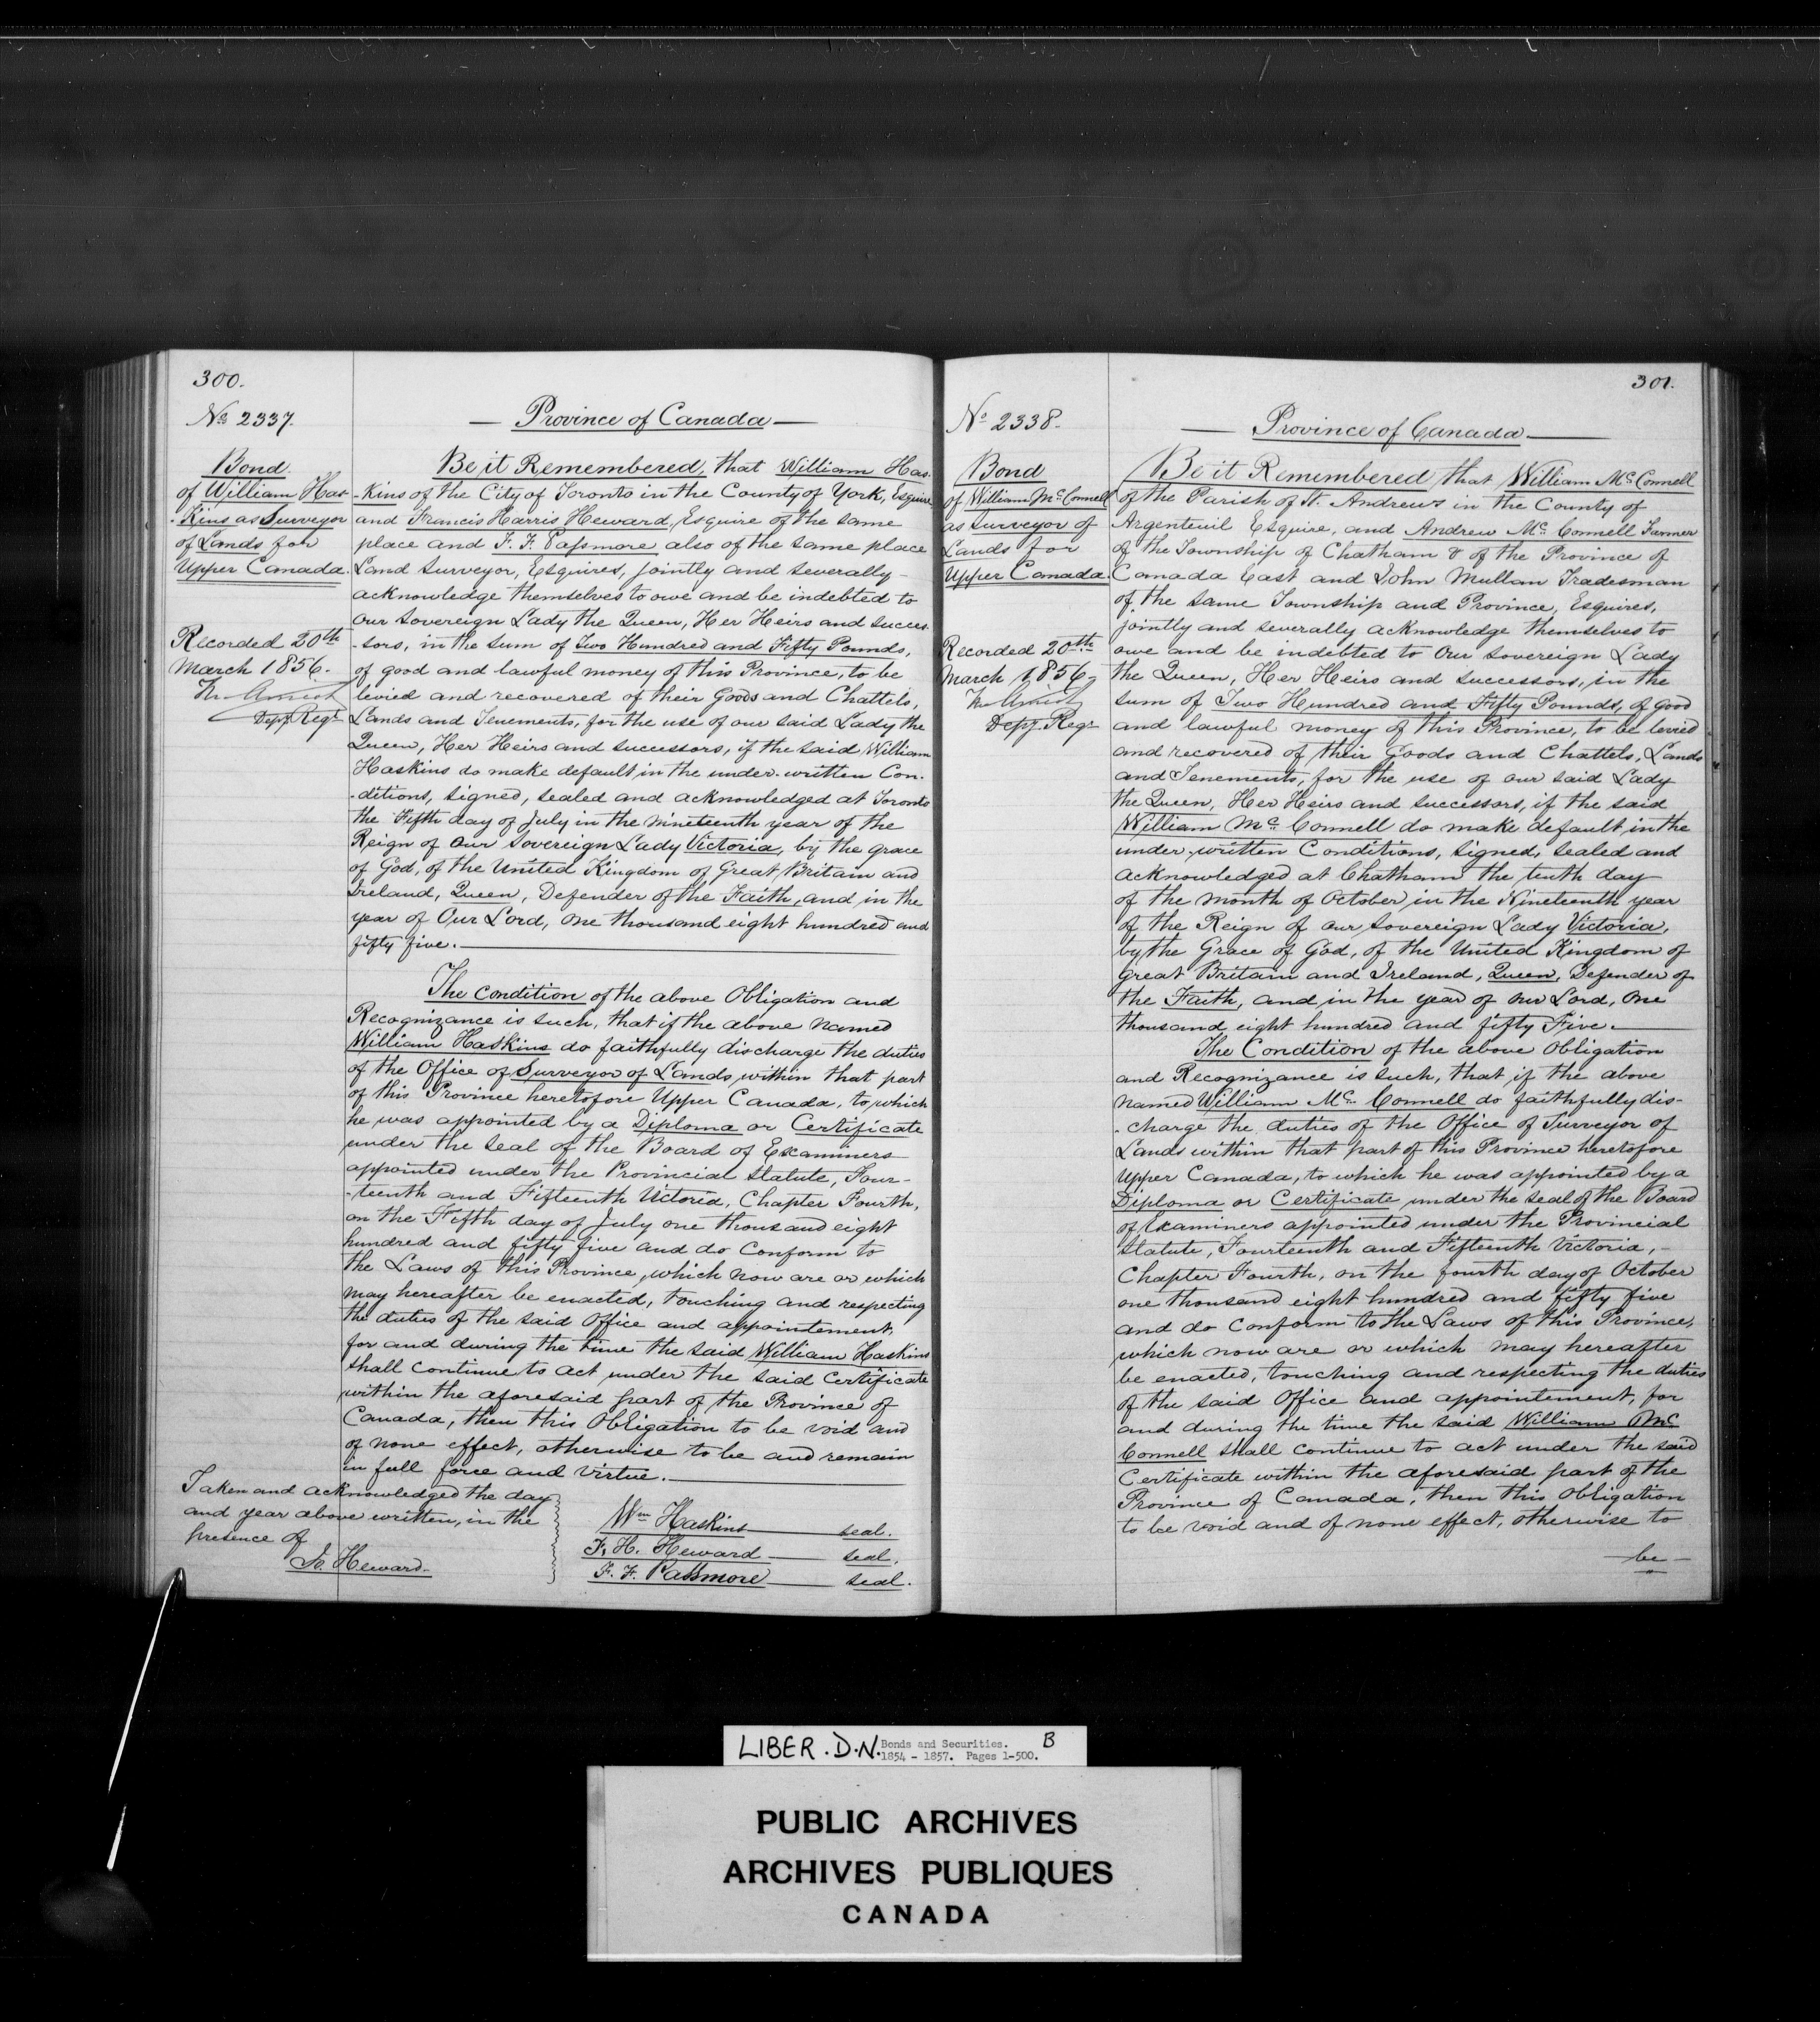 300.
No 2337.
Bond
of William Has-
-kins as Surveyor
of Lands for
Upper Canada.
Recorded 20th
March 1856.
Depy. Regr.
— Province of Canada —
Be it Remembered, that William Has-
-kins of the City of Toronto in the County of York, Esquire
and Francis Harris Heward, Esquire of the same
place and F. F. Passmore also of the same place
Land Surveyor, Esquires, jointly and severally
acknowledge themselves to owe and be indebted to
Our Sovereign Lady the Queen, Her Heirs and Succes-
-sors, in the sum of Two Hundred and Fifty Pounds,
of good and lawful money of this Province, to be
levied and recovered of their Goods and Chattels,
Lands and Tenements, for the use of our said Lady the
Queen, Her Heirs and successors, if the said William
Haskins do make default in the under-written Con-
-ditions, signed, sealed and acknowledged at Toronto
the Fifth day of July in the nineteenth year of the
Reign of Our Sovereign Lady Victoria, by the grace
of God, of the United Kingdom of Great Britain and
Ireland, Queen, Defender of the Faith, and in the
year of Our Lord, one thousand eight hundred and
fifty five.
The Condition of the above Obligation and
Recognizance is such, that if the above named
William Haskins do faithfully discharge the duties
of the Office of Surveyor of Lands within that part
of this Province heretofore Upper Canada, to which
he was appointed by a Diploma or Certificate
under the Seal of the Board of Examiners
appointed under the Provincial Statute, Four-
-teenth and Fifteenth Victoria, Chapter Fourth,
on the Fifth day of July one thousand eight
hundred and fifty five and do conform to
the Laws of this Province, which now are or which
may hereafter be enacted, touching and respecting
the duties of the said Office and appointement,
for and during the time the said William Haskins
shall continue to act under the said Certificate
within the aforesaid part of the Province of
Canada, then this Obligation to be void and
of none effect, otherwise to be and remain
in full force and virtue.
Taken and acknowledged the day
and year above written, in the
presence of
Heward.
Wm Haskins — seal.
F. H. Heward — seal.
F. F. Passmore — seal.
301.
No 2338.
Bond
of William Mc Connell
as Surveyor of
Lands for
Upper Canada.
Recorded 20th
March 1856
Depy. Regr
— Province of Canada —
Be it Remembered that William Mc Connell
of the Parish of St. Andrews in the County of
Argenteuil Esquire, and Andrew Mc Connell Farmer
of the Township of Chatham & of the Province of
Canada East and John Mullan Tradesman
of the same Township and Province, Esquires,
jointly and severally acknowledge themselves to
owe and be indebted to Our Sovereign Lady
the Queen, Her Heirs and successors, in the
sum of Two Hundred and Fifty Pounds, of good
and lawful money of this Province, to be levied
and recovered of their Goods and Chattels, Lands
and Tenements, for the use of our said Lady
the Queen, Her Heirs and successors, if the said
William Mc Connell do make default in the
under-written Conditions, signed, sealed and
acknowledged at Chatham the tenth day
of the month of October in the Nineteenth year
of the Reign of our Sovereign Lady Victoria,
by the Grace of God, of the United Kingdom of
Great Britain and Ireland, Queen, Defender of
the Faith, and in the year of our Lord, One
thousand eight hundred and fifty Five.
The Condition of the above obligation
and Recognizance is such, that if the above
named William Mc Connell do faithfully dis-
-charge the duties of the Office of Surveyor of
Lands within that part of this Province heretofore
Upper Canada, to which he was appointed by a
Diploma or Certificate under the seal of the Board
of Examiners appointed under the Provincial
Statute, Fourteenth and Fifteenth Victoria, -
Chapter Fourth, on the fourth day of October
one thousand eight hundred and fifty five
and do conform to the Laws of this Province,
which now are or which may hereafter
be enacted, touching and respecting the duties
of the said Office and appointement, for
and during the time the said William Mc
Connell shall continue to act under the said
Certificate within the aforesaid part of the
Province of Canada, then this obligation
to be void and of none effect, otherwise to
be
LIBER. D.N. Bonds and Securities. B
1854 - 1857. Pages 1-500.
PUBLIC ARCHIVES
ARCHIVES PUBLIQUES
CANADA